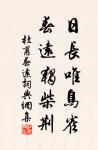 日長唯鳥雀
春遠獨柴荊
杜甫春遠詩典網集